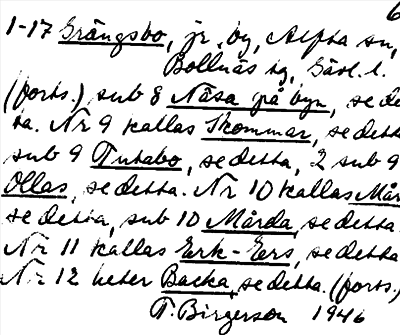 6
1-17 Grängsbo, jr, by, Alfta sn,
Bollnäs tg, Gävl. l.
(forts.) sub 8 Näsa på byn, se de
ta. Nr 9 kallas Skommar, se detta
sub 9 Tutabo, se detta, 2 sub 9
Ollas, se detta. Nr 10 kallas Mår
se detta, sub 10 Mårda, se detta.
Nr 11 kallas Erk-Ers, se detta
Nr 12 heter Backa, se detta. (forts.)
T. Birgerson 1946